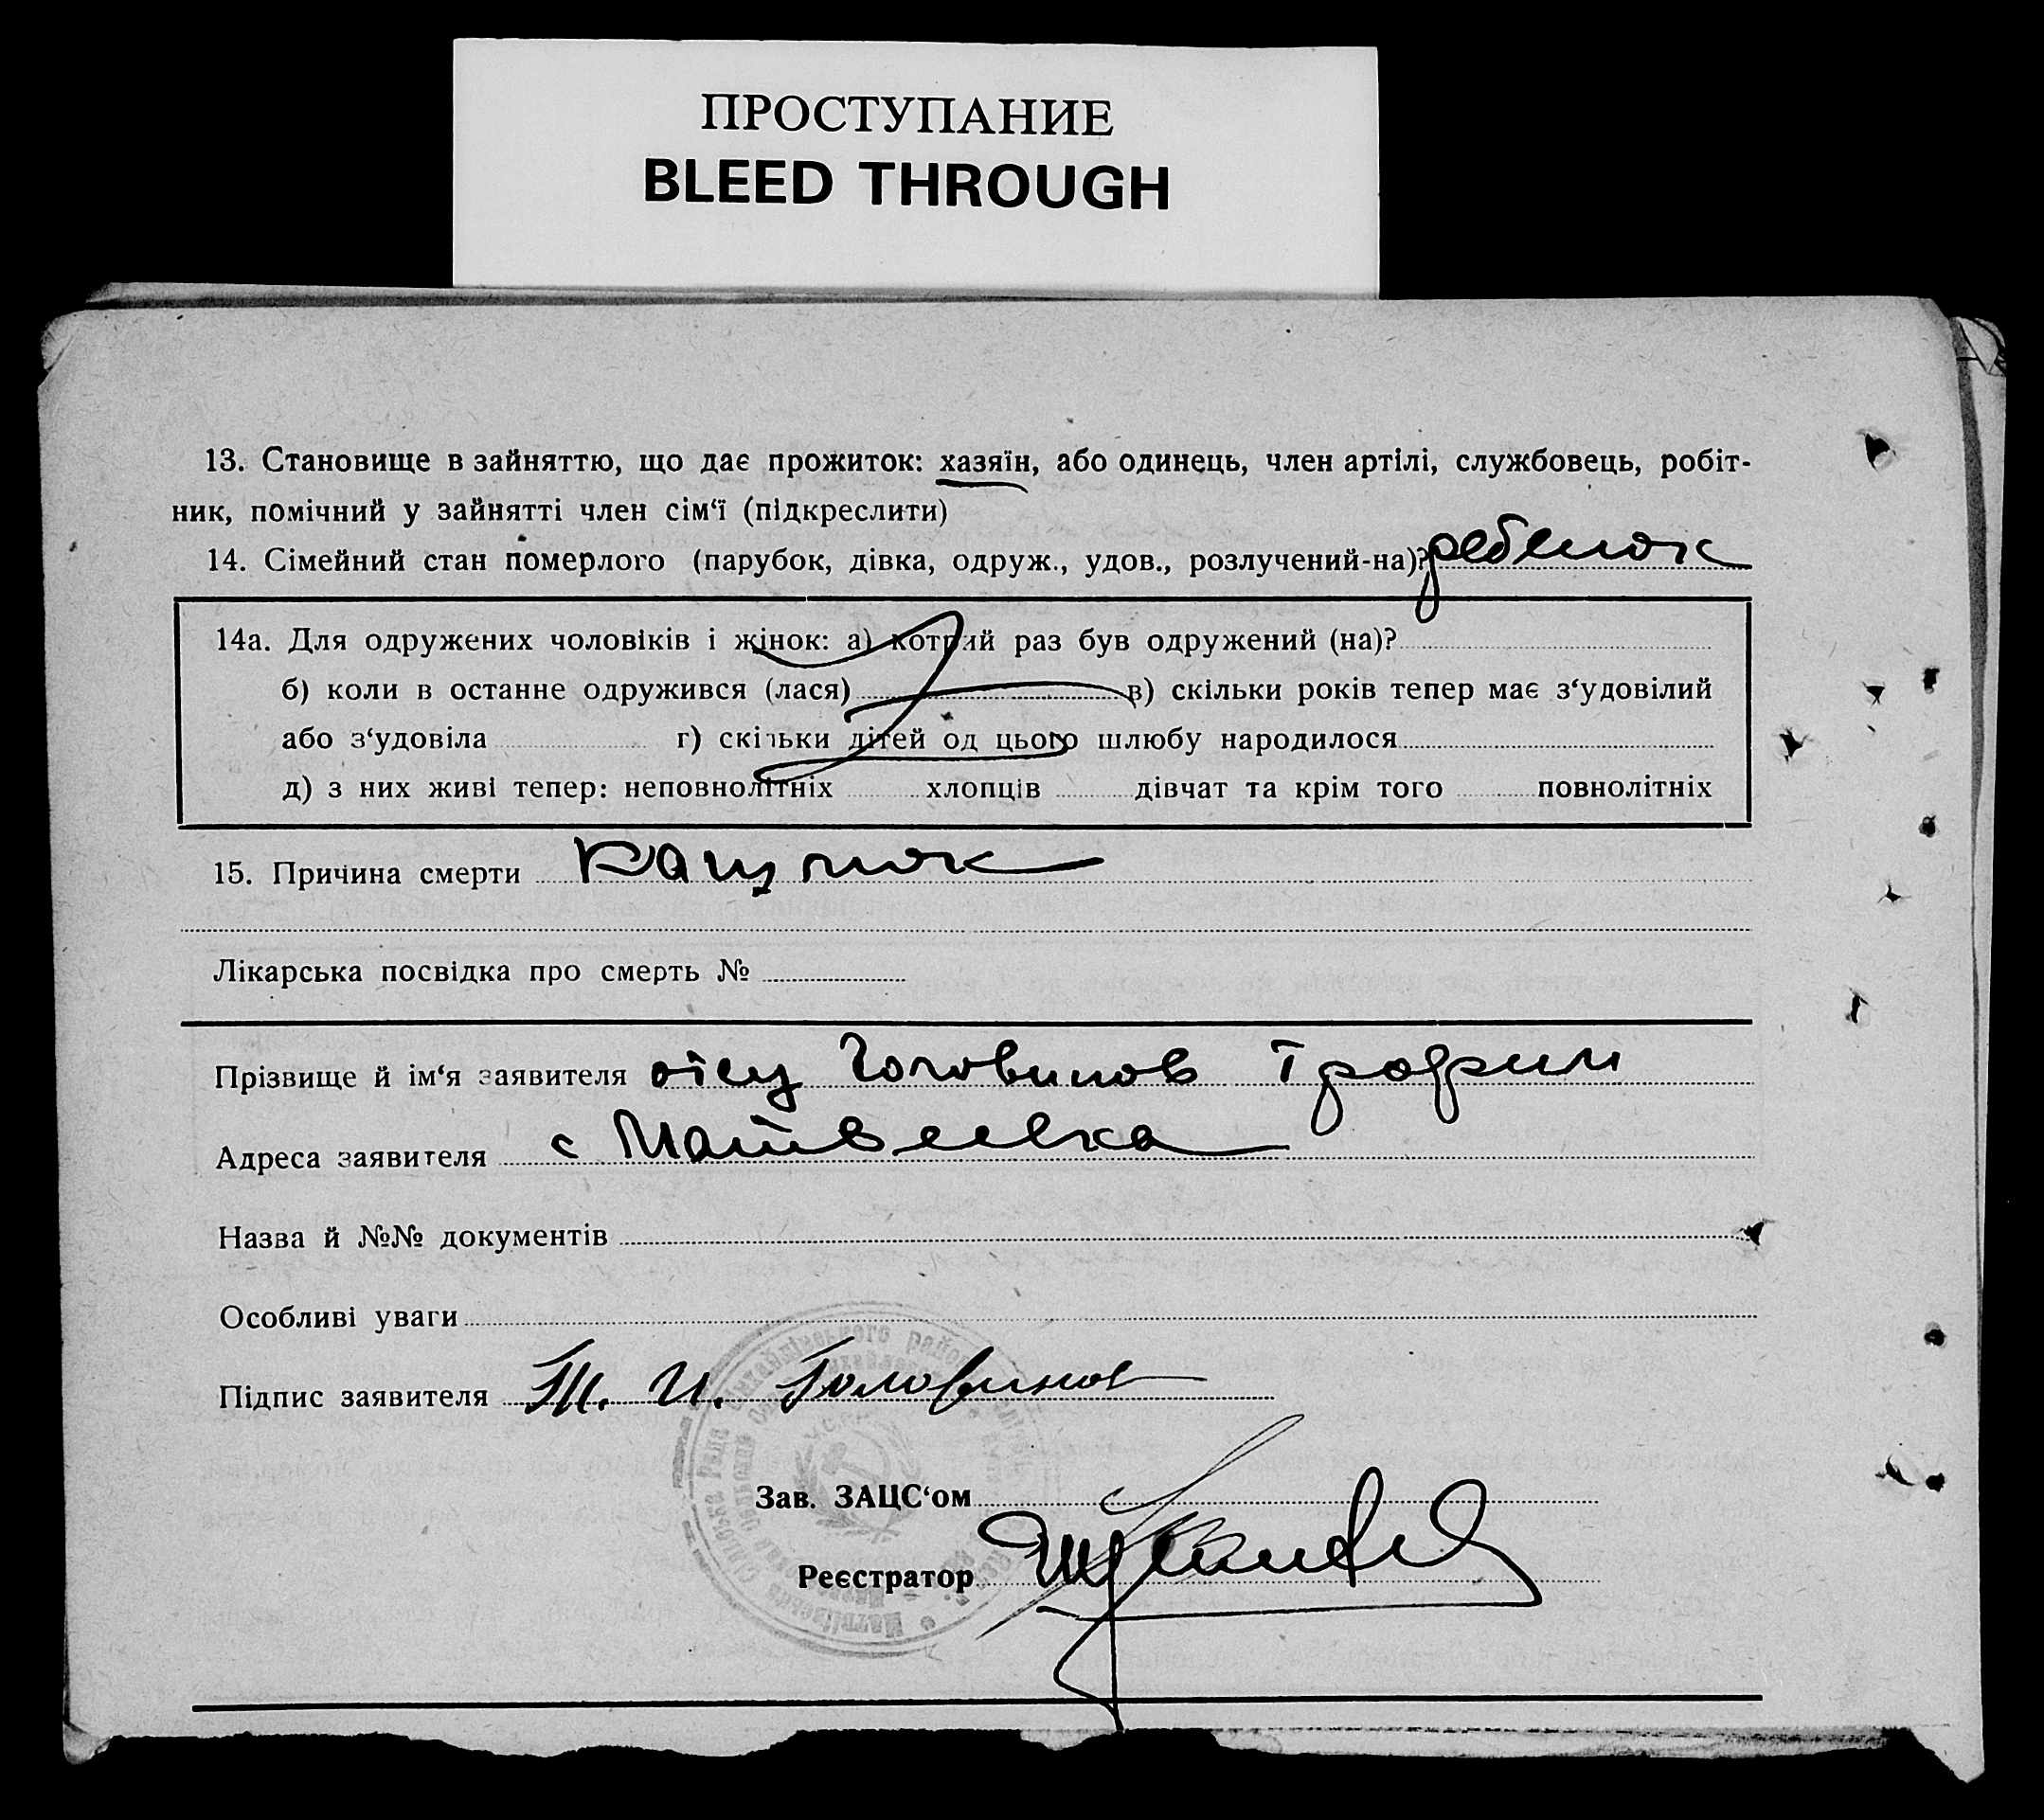 ПРОСТУПАНИЕ
BLEED THROUGH
13. Становище в зайняттю, що дає прожиток: хазяїн, або одинець, член артілі, службовець, робіт-
ник, помічний у зайнятті член сім‘ї (підкреслити)
14. Сімейний стан померлого (парубок, дівка, одруж., удов., розлучений-на)? ребенок
14а. Для одружених чоловіків і жінок: а) котрий раз був одружений (на)?
б) коли в останне одружився (лася) в) скільки років тепер має з‘удовілий
або з‘удовіла г) скільки дітей од цього шлюбу народилося
д) з них живі тепер: неповнолітніх хлопців дівчат та крім того повнолітніх
15. Причина смерти
Лікарська посвідка про смерть №
Прізвище й ім‘я заявителя отец Головинов Трофим
Адреса заявителя с Матвеевка
Назва й №№ документів
Особливі уваги
Підпис заявителя Т. И. Головинов
Зав. ЗАЦС‘ом
Реєстратор